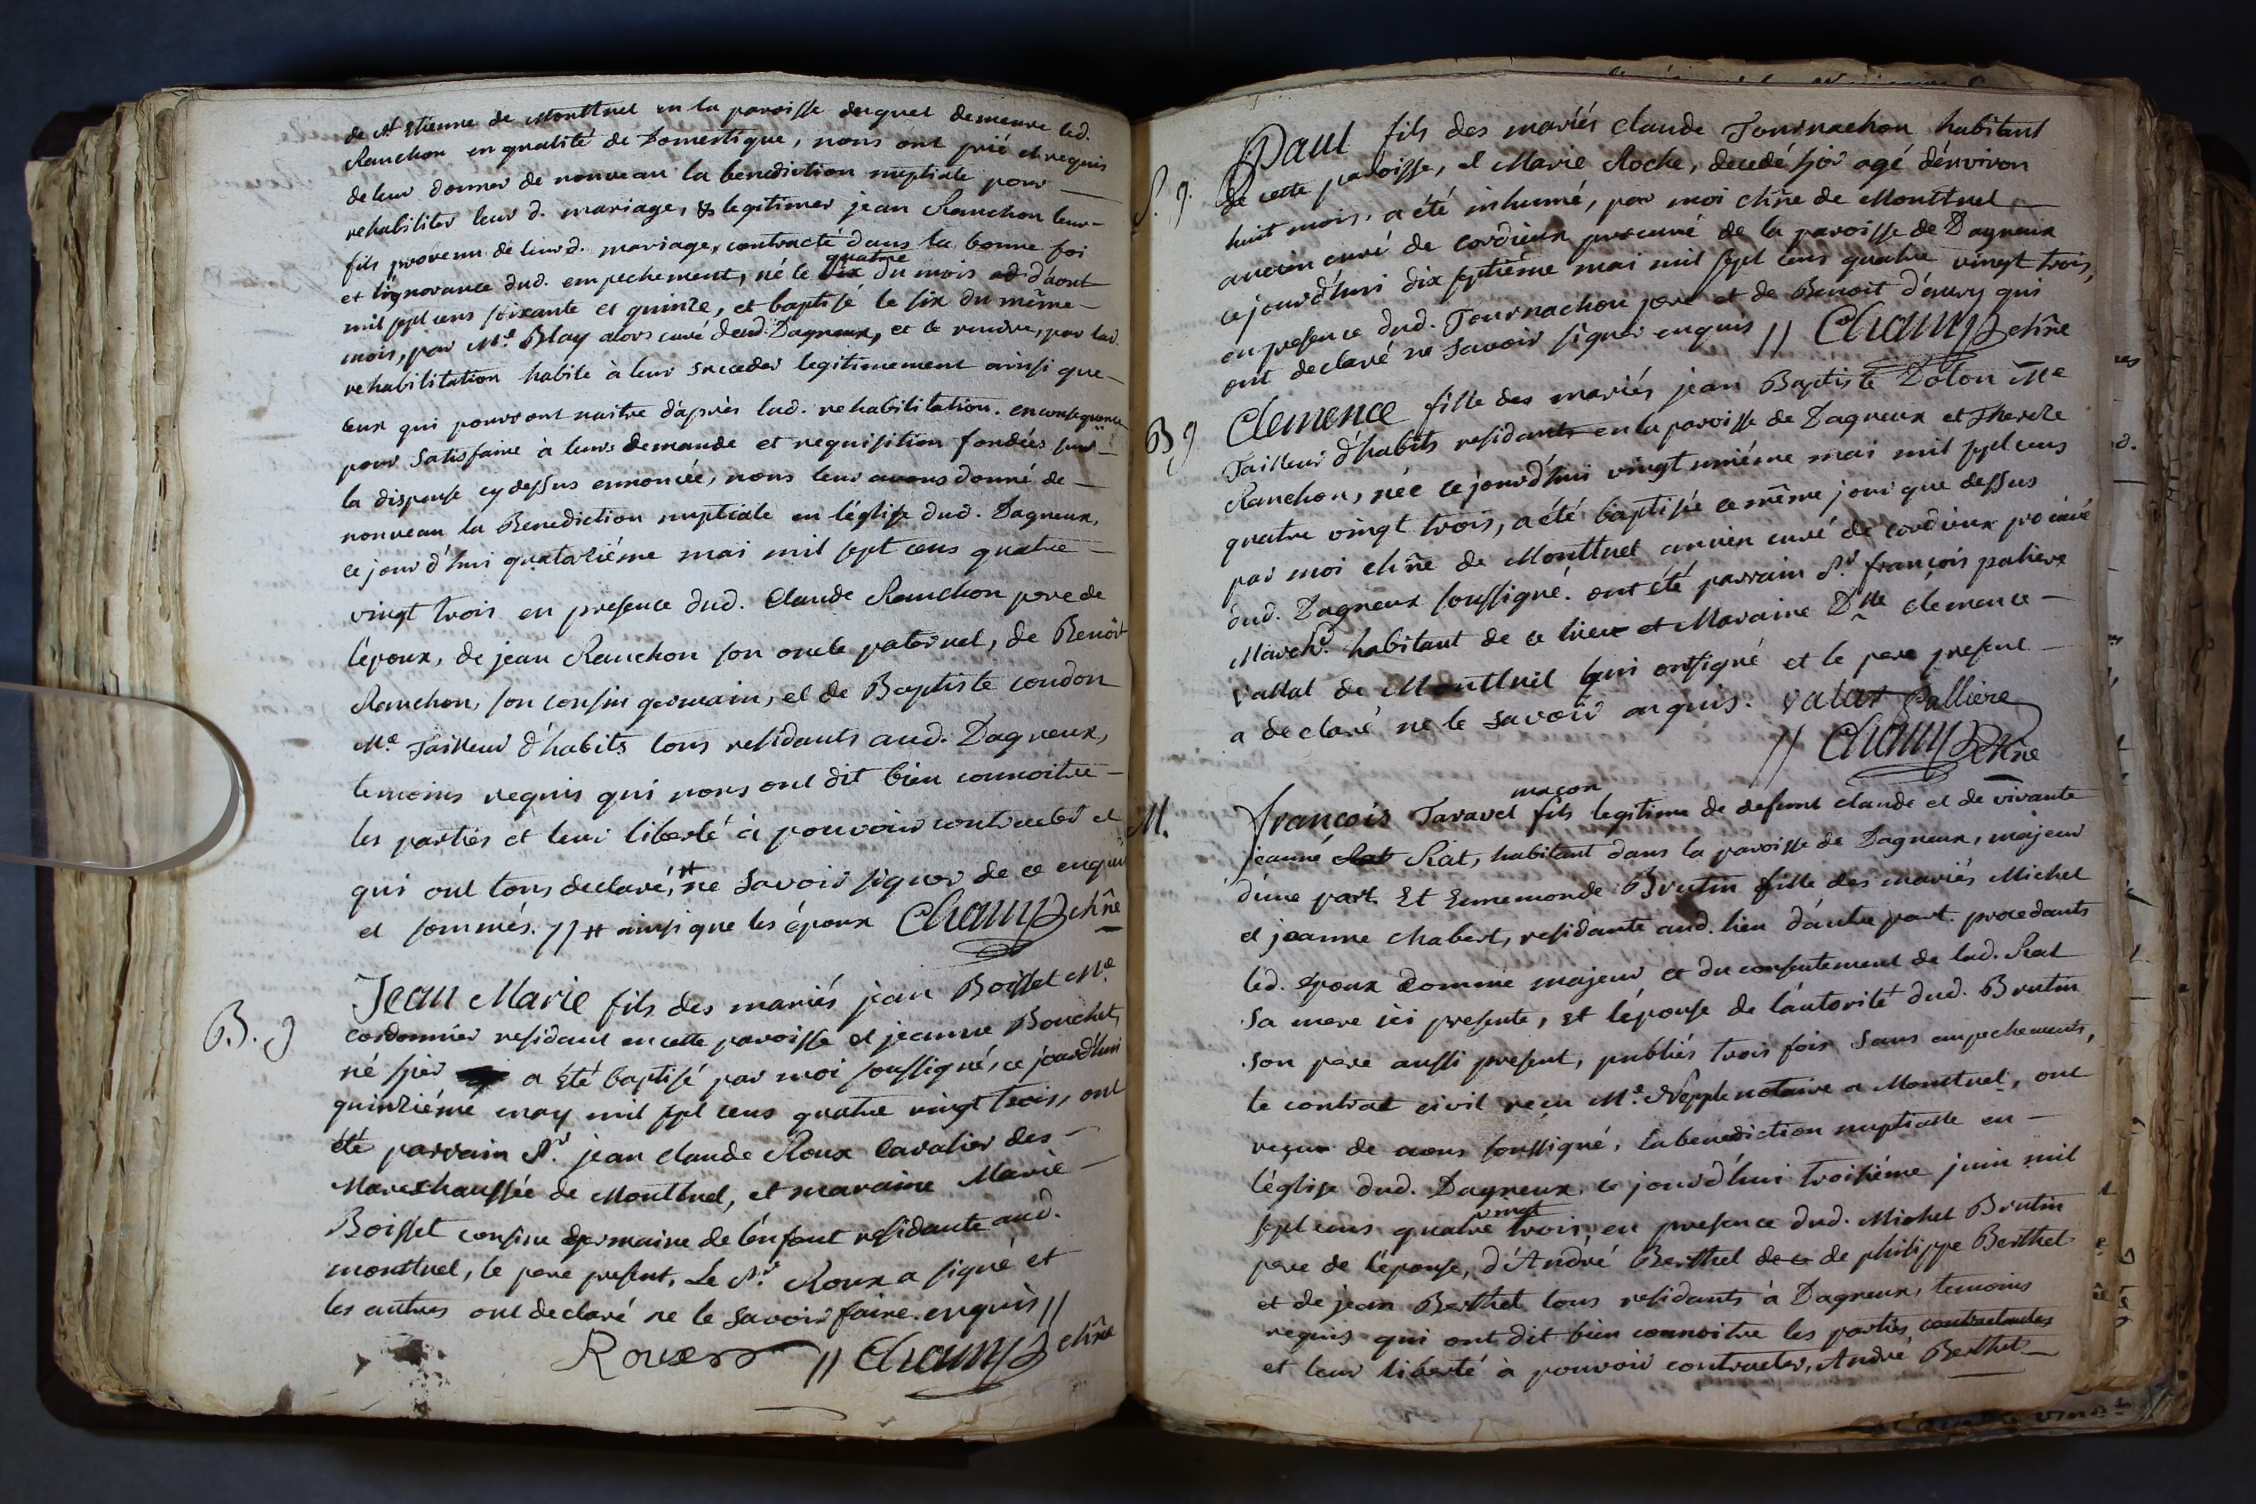 de St Etienne de Montluel en la paroisse duquel demeure led.
Ranchon en qualité de Domestique, nous ont prié et requis
de leur donner de nouveau la benediction nuptiale pour
rehabiliter leur d. mariage, & legitimer jean Ranchon leur
fils provenu de leur d. mariage, contracté dans la bonne foi
et l'ignorance dud. empechement, né le six quatre du mois d'aout
mil sept cens soixante et quinze, et baptisé le six du même
mois, par Mre Blay alors curé dud. Dagneux, et le rendre, par lad.
rehabilitation habile à leur succeder legitimement ainsi que
ceux qui pourront naitre d'après lad. rehabilitation. en consequence
pour satisfaire à leurs demande et requisition fondées sur
la dispense cy dessus ennoncée, nous leur avons donné de
nouveau la Benediction nuptiale en l'église dud. Dagneux,
ce jourd'hui quatorziéme mai mil sept cens quatre
vingt trois en presence dud. Claude Ranchon pere de
l'epoux, de jean Ranchon son oncle paternel, de Benoît
Ranchon, son cousin germain, et de Baptiste coudon
Me Tailleur d'habits tous residants aud. Dagneux,
temoins requis qui nous ont dit bien connoitre
les parties et leur liberté à pouvoir contracter et
qui ont tous declaré, # ne savoir signer de ce enquis
et sommés. // # ainsi que les époux Champ chñe
B. g Jean Marie fils des mariés jean Boisset Me
cordonnier residant en cette paroisse et jeanne Bouchet,
né hier a été baptisé par moi soussigné, ce jourd'hui
quinziéme may mil sept cens quatre vingt trois, ont
été parrain Sr jean claude Roux Cavalier des
Mareschaussée de Montluel, et maraine Marie
Boisset cousine germaine de l'enfant residante aud.
montluel, le pere present. Le Sr Roux a signé et
les autres ont declaré ne le savoir faire enquis //
Roux // Champ chñe
S. g. Paul fils des mariés claude Tournachon habitant
de cette paroisse, et Marie Roche, decedé hier agé d'environ
huit mois, a été inhumé, par moi chñe de Montluel
ancien curé de cordieux procuré de la paroisse de Dagneux
ce jourd'hui dix septiéme mai mil sept cens quatre vingt trois,
en presence dud. Tournachon pere et de Benoit d'aury qui
ont declaré ne savoir signer enquis // Champ chñe
B g Clemence fille des mariés jean Baptiste Dolon Me
Tailleur d'habits residants en la paroisse de Dagneux et Thereze
Ranchon, née ce jourd'hui vingt uniéme mai mil sept cens
quatre vingt trois, a été baptisée ce même jour que dessus
par moi chñe de Montluel ancien curé de cordieux procuré
dud. Dagneux soussigné. ont été parrain Sr françois paliere
March. habitant de ce lieu et Maraine Dlle clémence
vallat de Montluel qui ont signé et le pere present
a declaré ne le savoir enquis. valat Pallière
// Champ chñe
M. françois Taravel maçon fils legitime de defunt claude et de vivante
jeanne Rat Rat, habitant dans la paroisse de Dagneux, majeur
d'une part Et Ennemonde Brutin fille des mariés Michel
et jeanne chabert, residante aud. lieu d'autre part. procedants
led. epoux comme majeur et du consentement de lad. Rat
sa mere ici presente, et l'épouse de l'autorité dud. Brutin
son pere aussi present, publiés trois fois sans empechements,
le contrat civil recu Me Nepple notaire a Montluel, ont
reçue de nous soussigné, la benediction nuptialle en
l'église dud. Dagneux, ce jourd'hui troisiéme juin mil
sept cens quatre vingt trois, en presence dud. Michel Brutin
pere de l'épouse, d'André Berthet de ce de philippe Berthet
et de jean Berthet tous residants à Dagneux, temoins
requis qui ont dit bien connoitre les parties contractantes
et leur liberté à pouvoir contracter, André Berthet